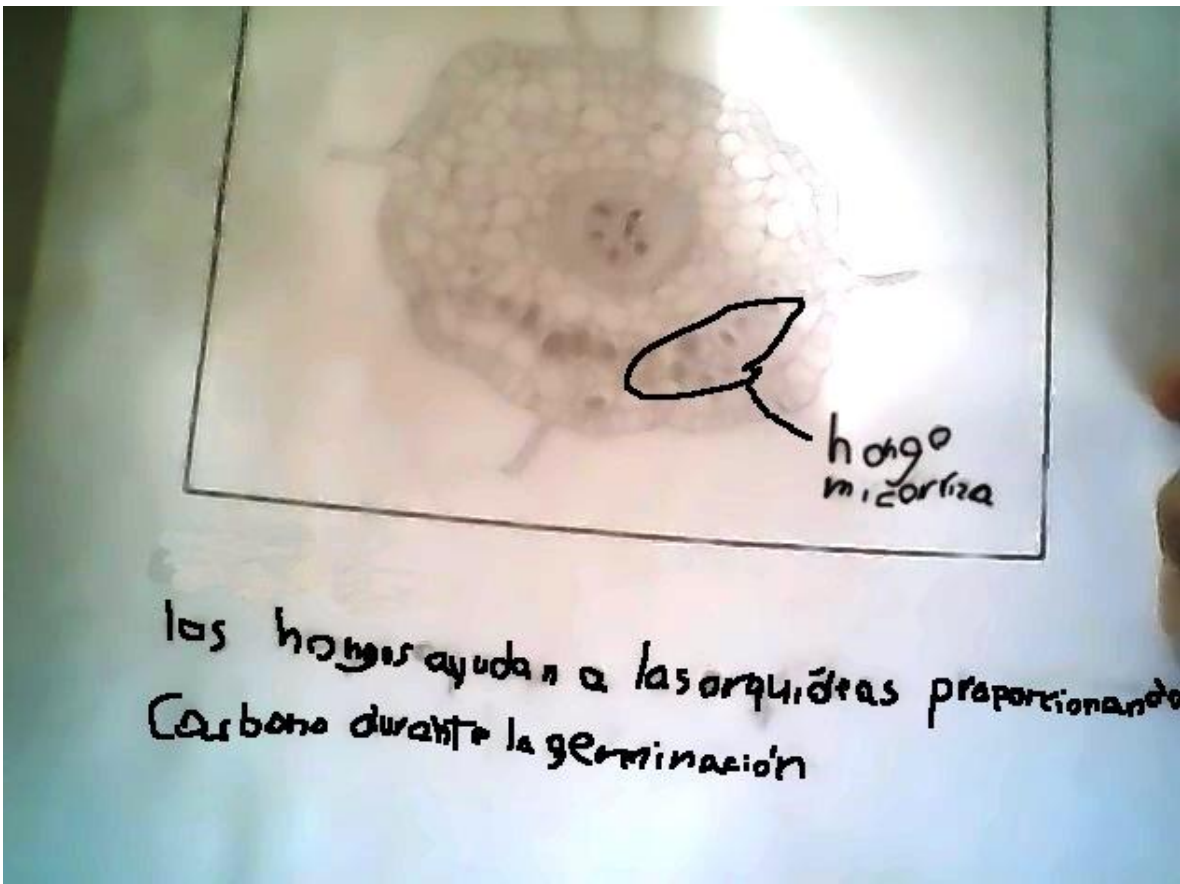 hongo
micorriza
los hongos ayudan a las orquídeas proporcionando
Carbono durante la germinación